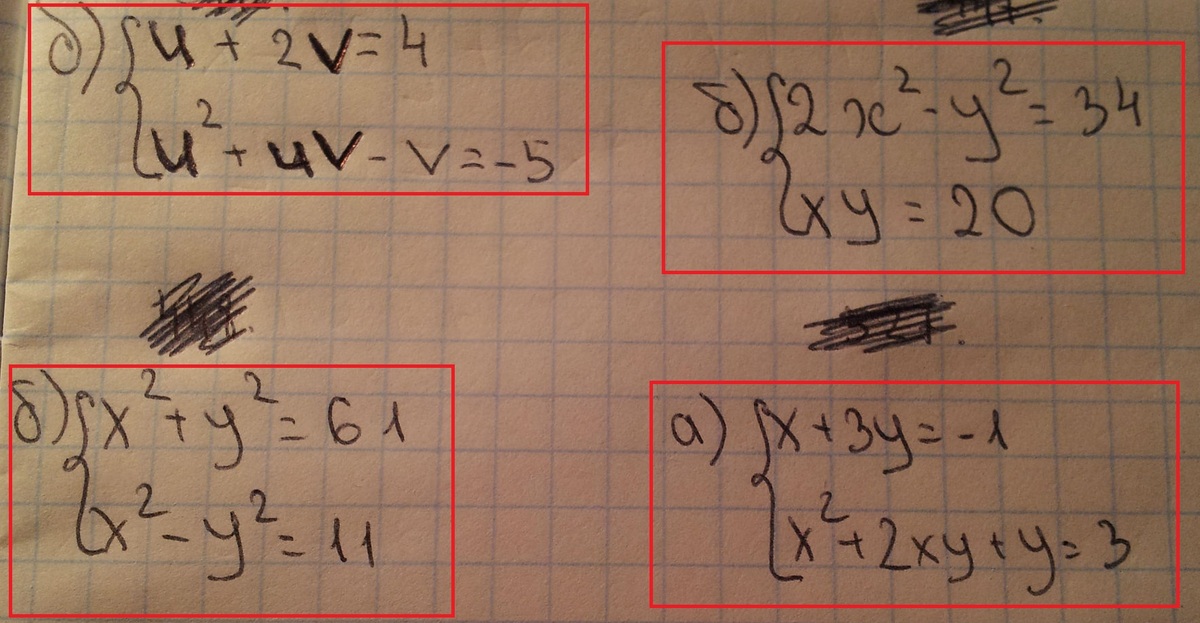 б) u + 2v = 4
u² + uv - v = -5
б) 2x² - y² = 34
xy = 20
б) x² + y² = 61
x² - y² = 11
а) x + 3y = -1
x² + 2xy + y = 3